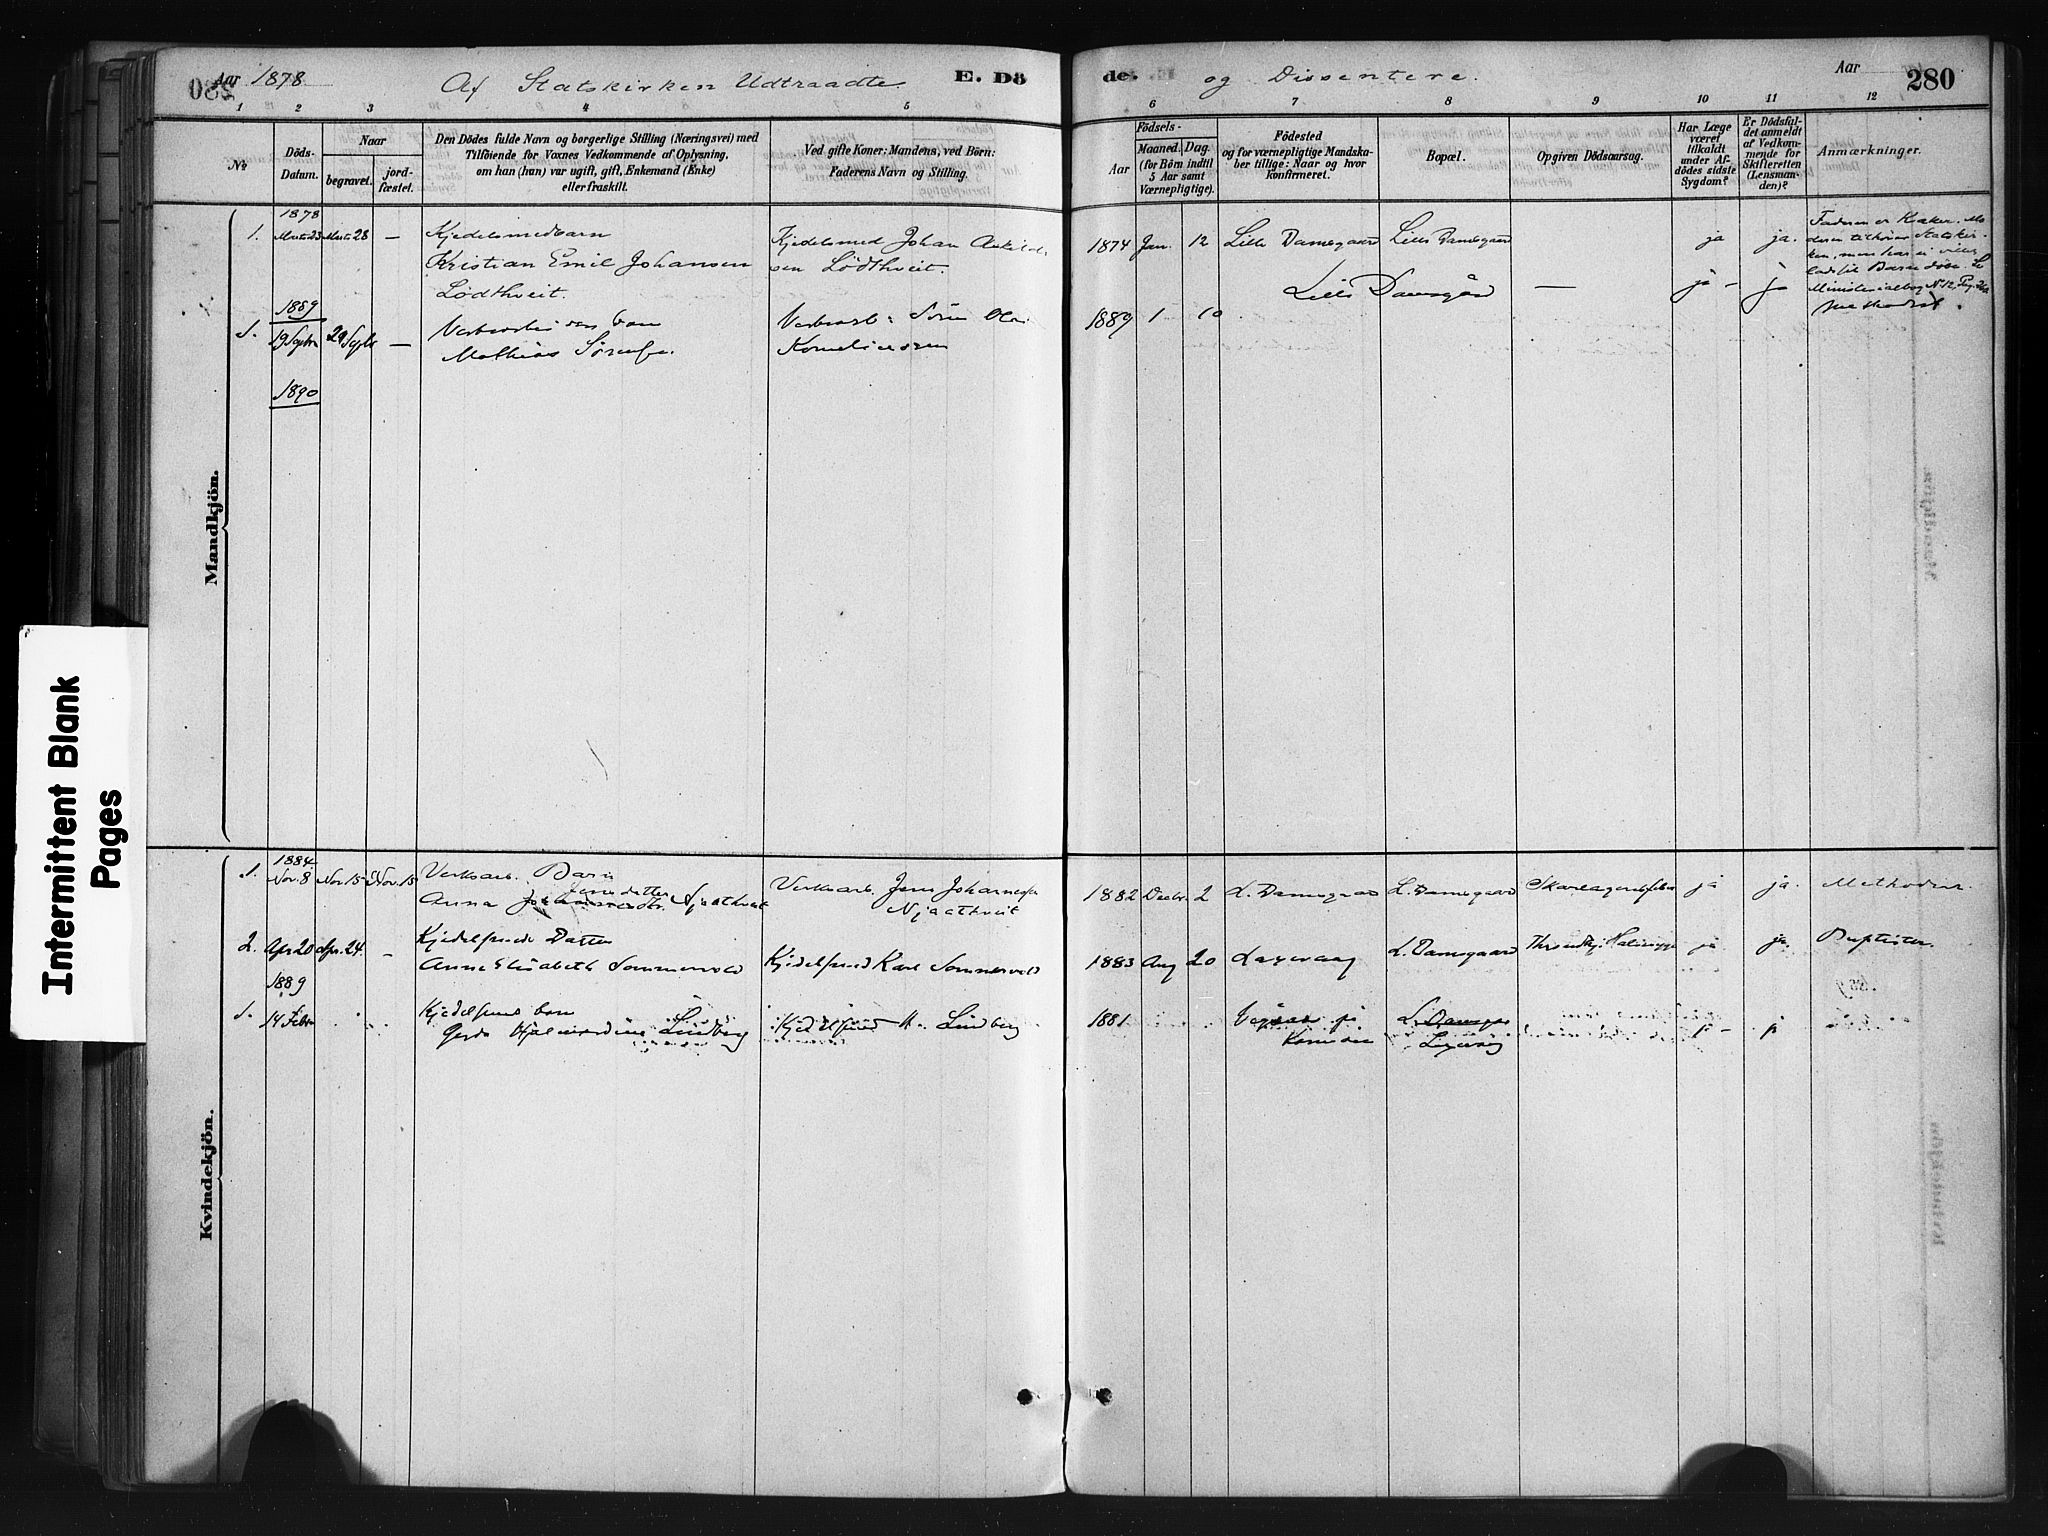 Aar 1878
Af Statskirken Udtraadte
E. Dö
de.
og Dissentere.
Aar
280
1 2 3 4 5
6 7 8 9 10 11 12
No
Döds-
Datum.
Naar
begravet.
jord-
fæstet.
Den Dödes fulde Navn og borgerlige Stilling (Næringsvei) med
Tilföiende for Voxnes Vedkommende af Oplysning,
om han (hun) var ugift, gift, Enkemand (Enke)
eller fraskilt.
Ved gifte Koner: Mandens, ved Börn:
Faderens Navn og Stilling.
Födsels-
Aar
Maaned. Dag.
(for Börn indtil
5 Aar samt
Værnepligtige).
Födested
og for værnepligtige Mandska-
ber tillige: Naar og hvor
konfirmeret.
Bopæl.
Opgiven Dödsaarsag.
Har Læge
været
tilkaldt
under Af-
dödes sidste
Sygdom?
Er Dödsfal-
det anmeldt
af Vedkom-
mende for
Skifteretten
(Lensman-
den)?
Anmærkninger.
Mandkjön.
1878
1. Marts 23 Marts 28 —
Kjedelsmedbarn
Kristian Emil Johansen
Lödthveit.
Kjedelsmed Johan
sen Lödthveit.
1874 Jan. 12 Lille Damsgaard Lille Damsgaard ja ja.
Faderen er Kvæker. Mo-
deren tilhører Statskir-
ken, men har ei villet
lade sit Barn døbe. Se
Ministerialbog No 12, Pag.
Methodist
1889
1. 19 Septbr 24 Septb —
barn
Mathias Sörens.
Sören Olai
Korneliussen
1889 1 10
Lille Damsgård — ja - ja
1890
Kvindekjön.
1884
1. Nov. 8 Nov. 15 Nov. 15
Verksarb. Barn
Jensdatter
Anna Njaathveit
Verksarb. Jens Johannes
Njaathveit
1882 Decbr. 2 L. Damsgaard L. Damsgaard Skarlagensfeber ja ja. Methodist.
2. Apr 20 Apr. 24. —
Kjedelsmeds Datter
Anna Elisabeth Sommervold
Kjedelsmed Karl Sommervold
1883 Aug 20 Laxevaag L. Damsgaard ja ja. Baptister.
1889
1. 14 Febr
Kjedelsmeds barn
Gerda Hjalmardine Lindberg
Kjedelsmed H. Lindberg
1881 på
L. Damsgr
Laxevåg
ja - ja
Intermittent Blank
Pages